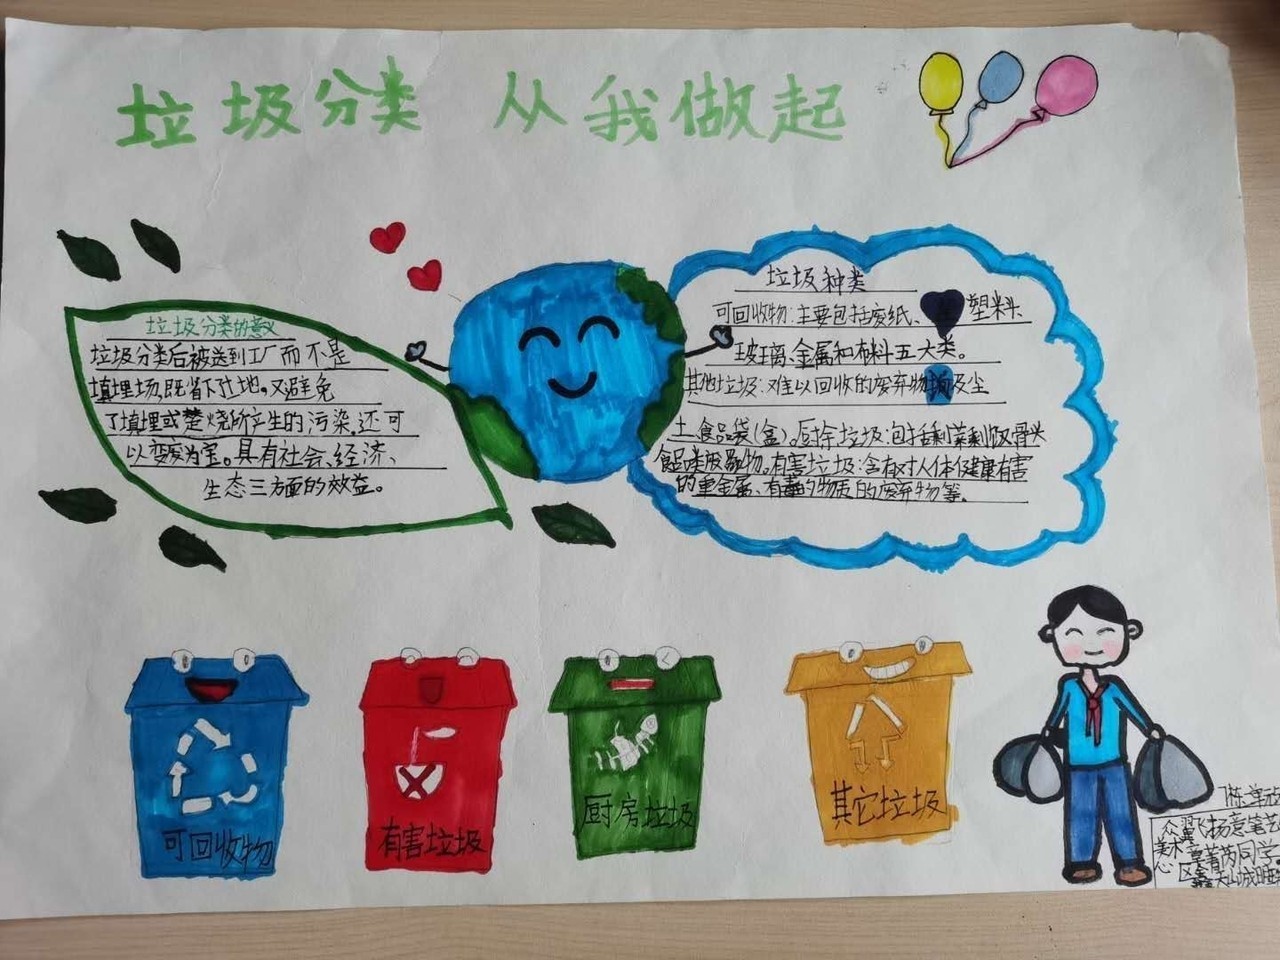 垃圾分类 从我做起
垃圾分类的意义
垃圾分类后被送到工厂而不是
填埋场,既省下土地。又避免
了填埋或焚烧所产生的污染,还可
以变废为宝。具有社会、经济、
生态三方面的效益。
垃圾种类
可回收物:主要包括废纸、塑料、
玻璃、金属和布料五大类。
其他垃圾:难以回收的废弃物及尘
土、食品袋(盒)。厨余垃圾:包括剩菜剩饭、骨头
食品类废物。有害垃圾:含有对人体健康有害
的重金属、有毒的物质的废弃物等。
可回收物
有害垃圾
厨房垃圾
其它垃圾
众翼飞扬意笔艺
美术 同学
心 区鑫天山城